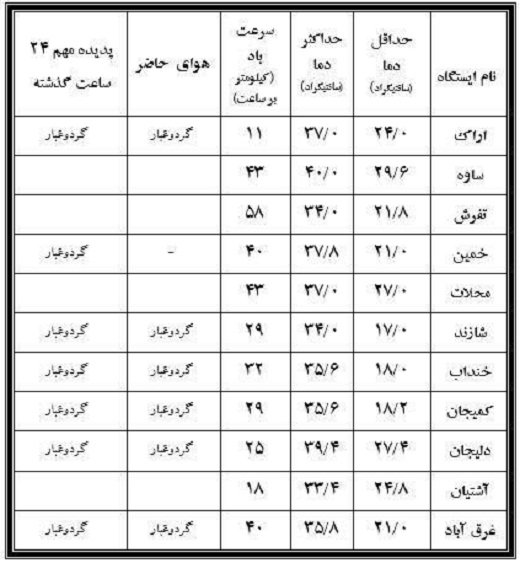 نام ایستگاه حداقل دما (سانتیگراد) حداکثر دما (سانتیگراد) سرعت باد (کیلومتر برساعت) هوای حاضر پدیده مهم ۲۴ ساعت گذشته
اراک ۲۴/۰ ۳۷/۰ ۱۱ گردوغبار گردوغبار
ساوه ۲۹/۶ ۴۰/۰ ۴۳
تفرش ۲۱/۸ ۳۴/۰ ۵۸
خمین ۲۱/۰ ۳۷/۸ ۴۰ - گردوغبار
محلات ۲۷/۰ ۳۷/۰ ۴۳
شازند ۱۷/۰ ۳۴/۰ ۲۹ گردوغبار گردوغبار
خنداب ۱۸/۰ ۳۵/۶ ۳۲ گردوغبار گردوغبار
کمیجان ۱۸/۲ ۳۵/۶ ۲۹ گردوغبار گردوغبار
دلیجان ۲۷/۴ ۳۹/۴ ۲۵ گردوغبار گردوغبار
آشتیان ۲۴/۸ ۳۳/۴ ۱۸
غرق آباد ۲۱/۰ ۳۵/۸ ۴۰ گردوغبار گردوغبار